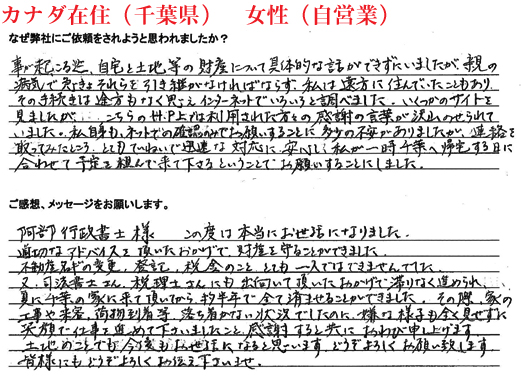 カナダ在住（千葉県）　女性（自営業）
なぜ弊社にご依頼をされようと思われましたか？
事が起こる迄、自宅と土地等の財産について具体的な話ができずにいましたが、親の
病気で急きょそれらを引き継がなければならず、私は遠方に住んでいたこともあり
その手続きは途方もなく思え、インターネットでいろいろと調べました。いくつかのサイトを
見ましたが、こちらのサイトは利用された方々の感謝の言葉が沢山のせられて
いました。私自身も、ネットでの確認のみでお願いすることに多少の不安がありましたが、連絡を
取ってみたところ、とてもていねいで迅速な対応に安心し、私が一時千葉へ帰宅する日に
合わせて予定を組んで来て下さるということでお願いすることにしました。
ご感想、メッセージをお願いします。
阿部行政書士様　この度は本当にお世話になりました。
適切なアドバイスを頂いたおかげで、財産を守ることができました。
不動産名ギの変更、登記、税金のこと、とても一人ではできませんでした。
又、司法書士さん、税理士さんにも出向いて頂いたおかげで滞りなく進められ、
夏に千葉の家に来て頂いてから、約半年で全て済ませることができました。その際、家の
工事や来客、荷物到着等、落ち着かない状況でしたのに、嫌な様子も全く見せずに
笑顔で仕事を進めて下さいましたこと、感謝すると共に、おわび申し上げます。
土地のことでも今後もお世話になると思います。どうぞよろしくお願い致します。
皆様にもどうぞよろしくお伝え下さいませ。